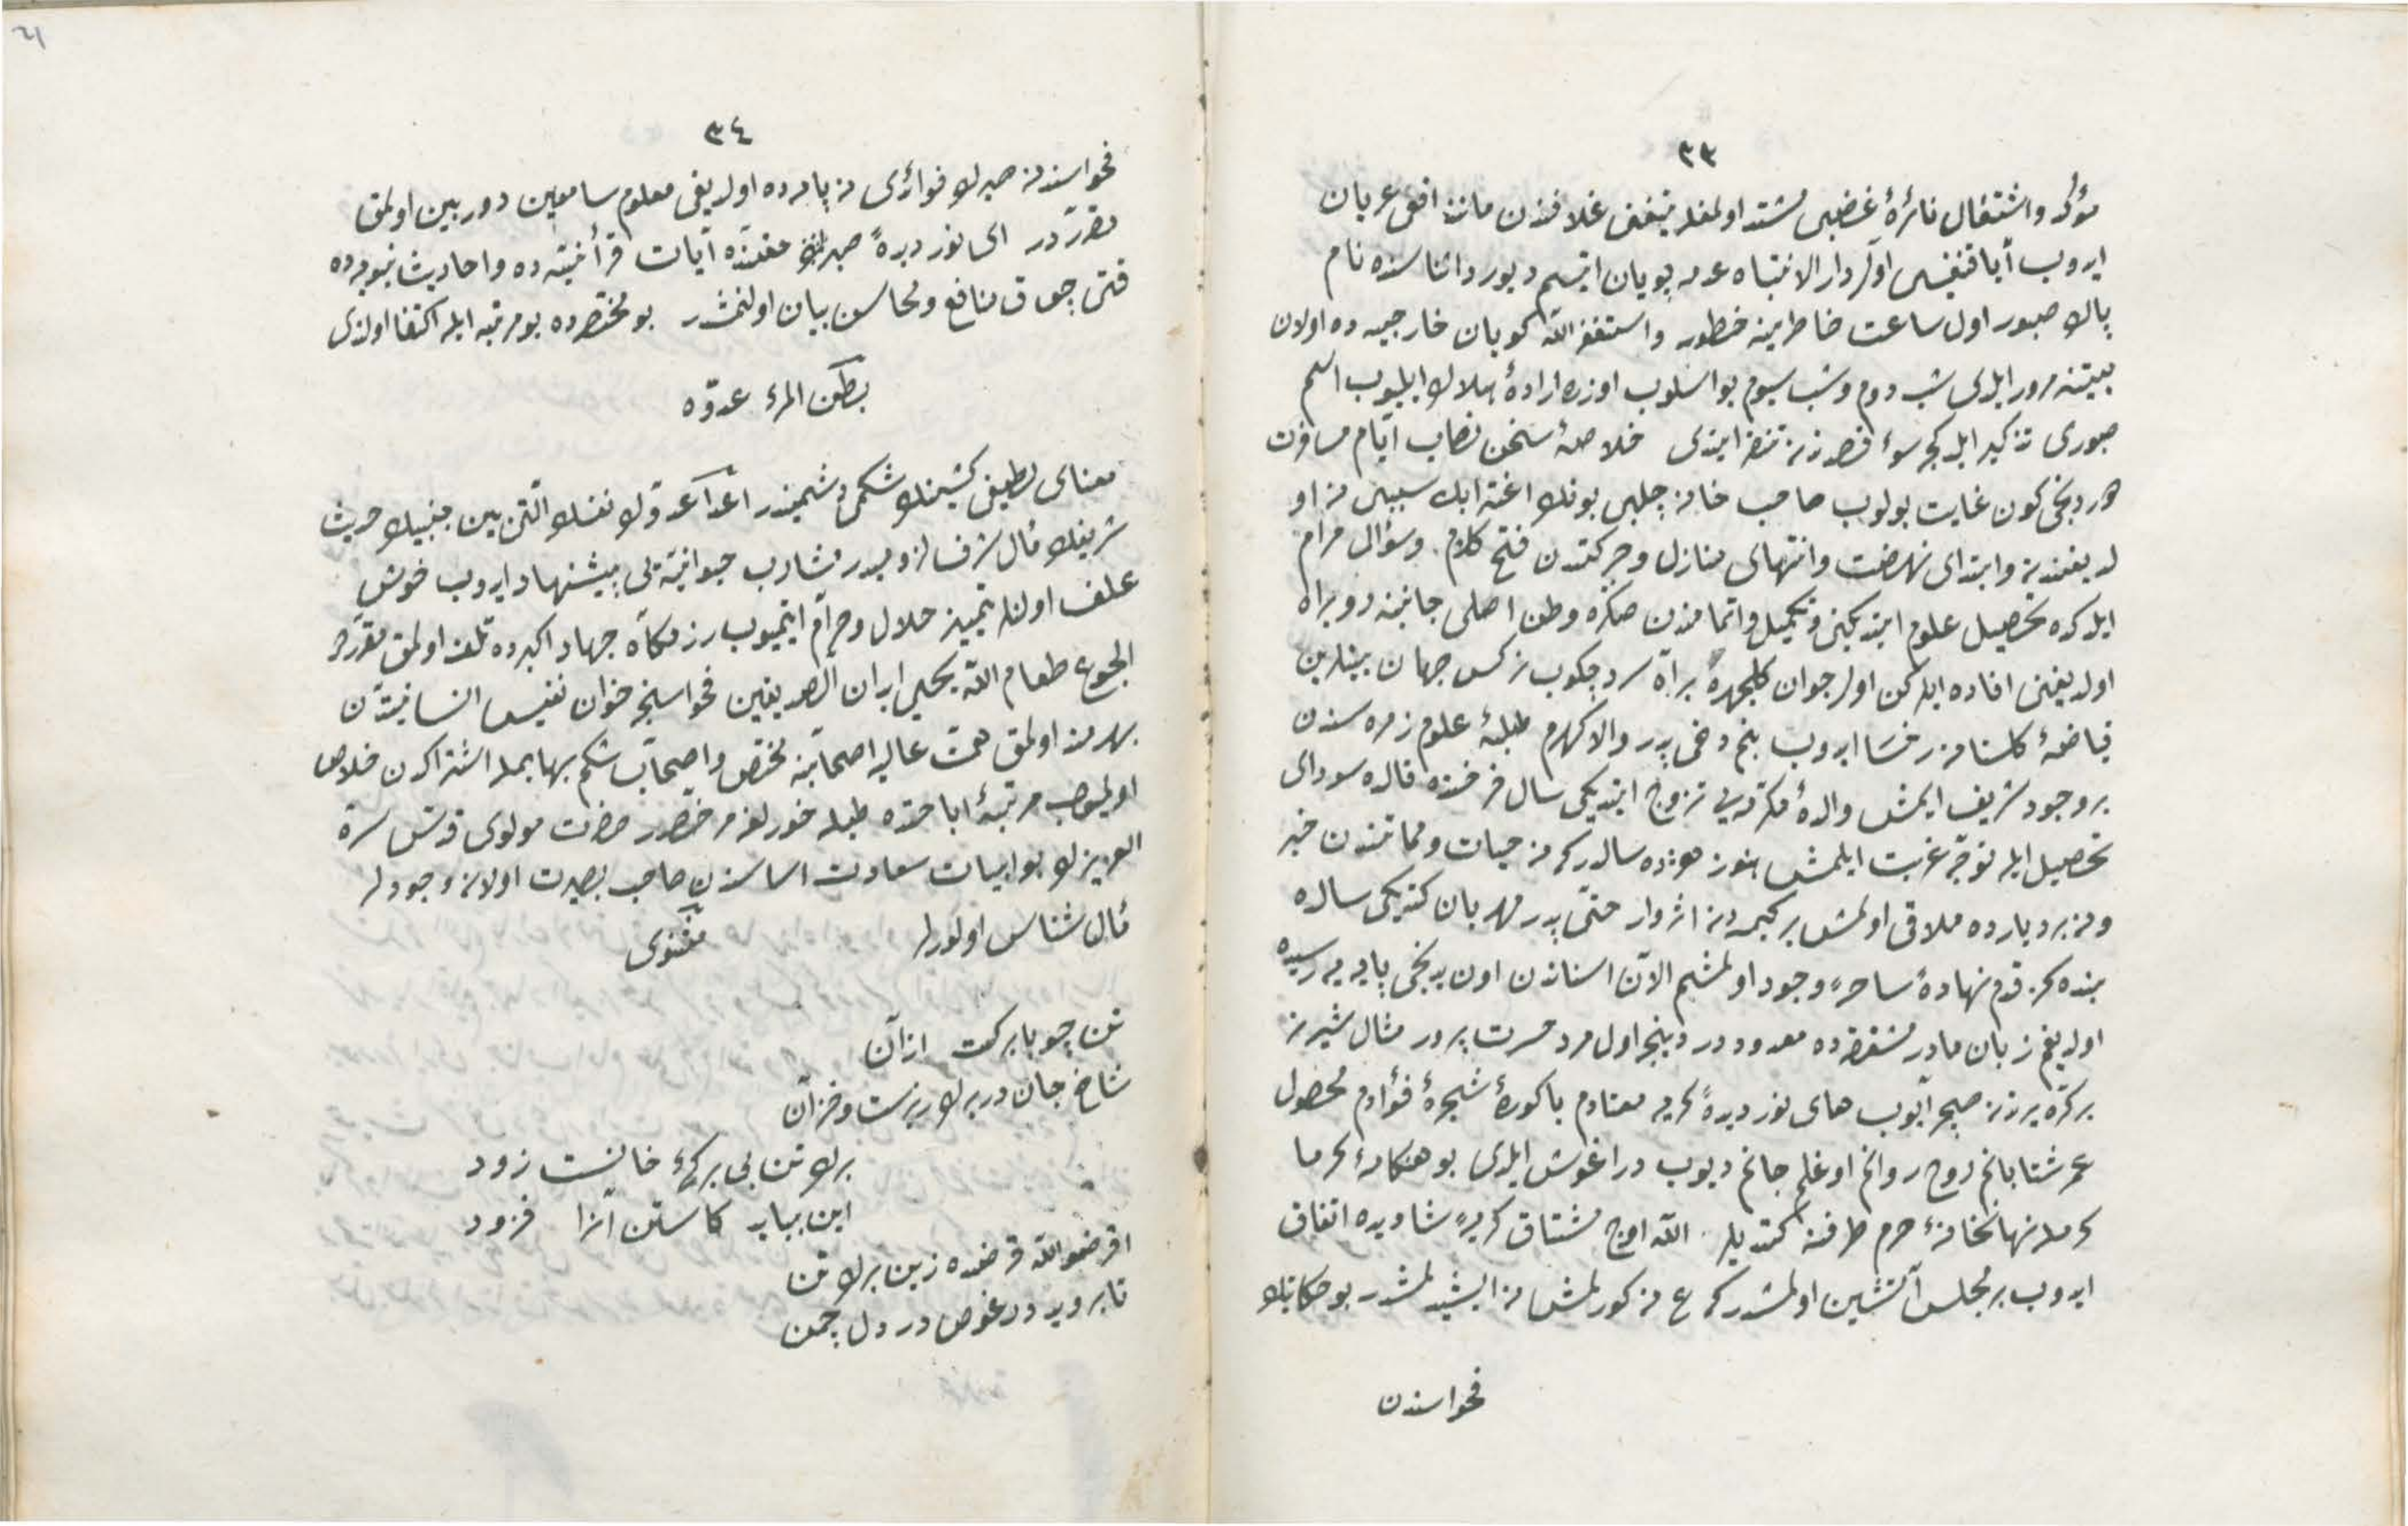 ٣٣
مؤكد واشتغال نائرهٔ غضبی مشتد اولمغله تیغنی غلافندن مانند افعی عریان
ایدوب آیا قنغیسی اولر دار الانتباه عدمه پویان ایتسم دیو ردا اثناسنده نام
پاك صبور اول ساعت خاطرینه خطور واستغفر الله كویان خارجیه ده اولان
بیتنه مرور ایلدی شب دوم وشب سیوم بو اسلوب اوزره ارادهٔ هلاك ایلیوب اسم
صبوری تذكیر ایله كچر سوء قصدندن تنفر ایتدی خلاصهٔ سخن نصاب ایام مسافرت
دردنجی كون غایت بولوب صاحب خانه چلبی بونك اغتراب سببی نه او
لدیغندن وابتدای نهضت وانتهای منازل وحركتدن فتح كلام وسؤال مرام
ایلدكده تحصیل علوم ایتدیكنی وتكمیل واتمامندن صكره وطن اصلی جانبنه روبراه
اولدیغنی افاده ایلركن اول جوان كلچهره بر آه سرد چكوب نركس جهان بینلرین
بنم دخی پدر والا كهرم طلبهٔ علوم زمره سندن
بر وجود شریف ایمش والدهٔ مكرمه یی تزوج ایتدیكی سال فرخنده فالده سودای
تحصیل ایله توجه غربت ایلمش هنوز هژده سالدر كه نه حیات ومماتندن خبر
ونه بر دیارده ملاقی اولمش بر كیمسه دن اثر وار حتی پدر مهربان كتدیكی سالده
بنده كز قدم نهادهٔ ساحهٔ وجود اولمشم الآن اسناندن اون یدنجی پایه یه رسیده
اولدیغم زبان مادر مشفقه ده معدوددر دینجه اول مرد حسرت پرور مثال شیر نر
بر كره یرندن صیچرایوب های نور دیدهٔ كریه معتادم باكورهٔ شجرهٔ فؤادم محصول
عمر شتابانم روح روانم اوغلم جانم دیوب در اغوش ایلدی بو هنكامهٔ كرما
كرمله نهانخانهٔ حرم طرفنه كتدیلر الله اوچ مشتاق كریهٔ شادیده اتفاق
ایدوب بر مجلس آتشین اولمشدر كه ع نه كورلمش نه ایشیدلمشدر بو حكایتك
فحواسندن
٣٤
فحواسندن صبرك فوائدی نه پایه ده اولدیغی معلوم سامعین دوربین اولمق
مقرردر ای نور دیده صبرك حقنده آیات قرآنیه ده واحادیث نبویه ده
قتی چوق منافع ومحاسن بیان اولنمشدر بو مختصرده بو مرتبه ایله اكتفا اولندی
بطن المرء عدوّه
معنای لطیفی كشینك شكمی دشمنیدر اعدا عدوّك نفسك الّتی بین جنبیك حدیث
شریفك مآل شرف لزومیدر مشارب حیوانیه یی پیشنهاد ایدوب خوش
علف اولنلر تمییز حلال وحرام ایتمیوب رزمكاه جهاد اكبرده تلف اولمق مقرردر
الجوع طعام الله یحیی ابدان الصدیقین فحواسنجه خوان نفیس انسانیتدن
بهره مند اولمق همت عالیه اصحابنه مختص واصحاب شكم بهایمله اشتراكدن خلاص
اولمیوب مرتبهٔ اباحتده طبله خورلغه منحصردر حضرت مولوی قدّس سرّه
العزیزك بو ابیات سعادت اساسندن صاحب بصیرت اولان وجودلر
مآل شناس اولورلر مثنوی
تن چو با بركست از آن
شاخ جان در برك ریزست وخزان
برك تن بی بركیٔ جانست زود
این بباید كاستن آنرا فزود
اقرضوا الله قرض ده زین برك تن
تا بروید در عوض در دل چمن